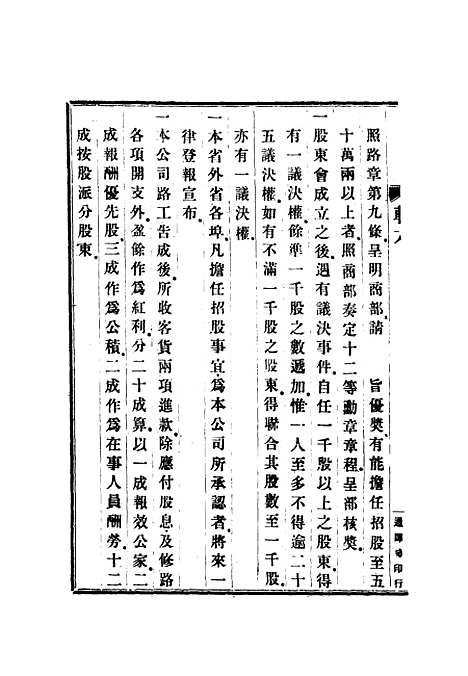 照路章第九條呈明商部請　旨優獎有能擔任招股至五
十萬兩以上者照商部奏定十二等勳章章程呈部核獎
一股東會成立之後遇有議決事件自任一千股以上之股東得
有一議決權餘準一千股之數遞加惟一人至多不得逾二十
五議決權如有不滿一千股之股東得聯合其股數至一千股
亦有一議決權
一本省外省各埠凡擔任招股事宜爲本公司所承認者將來一
律登報宣布
一本公司路工告成後所收客貨兩項進款除應付股息及修路
各項開支外盈餘作爲紅利分二十成算以一成報效公家二
成報酬優先股三成作爲公積二成作爲在事人員酬勞十二
成按股派分股東
印行